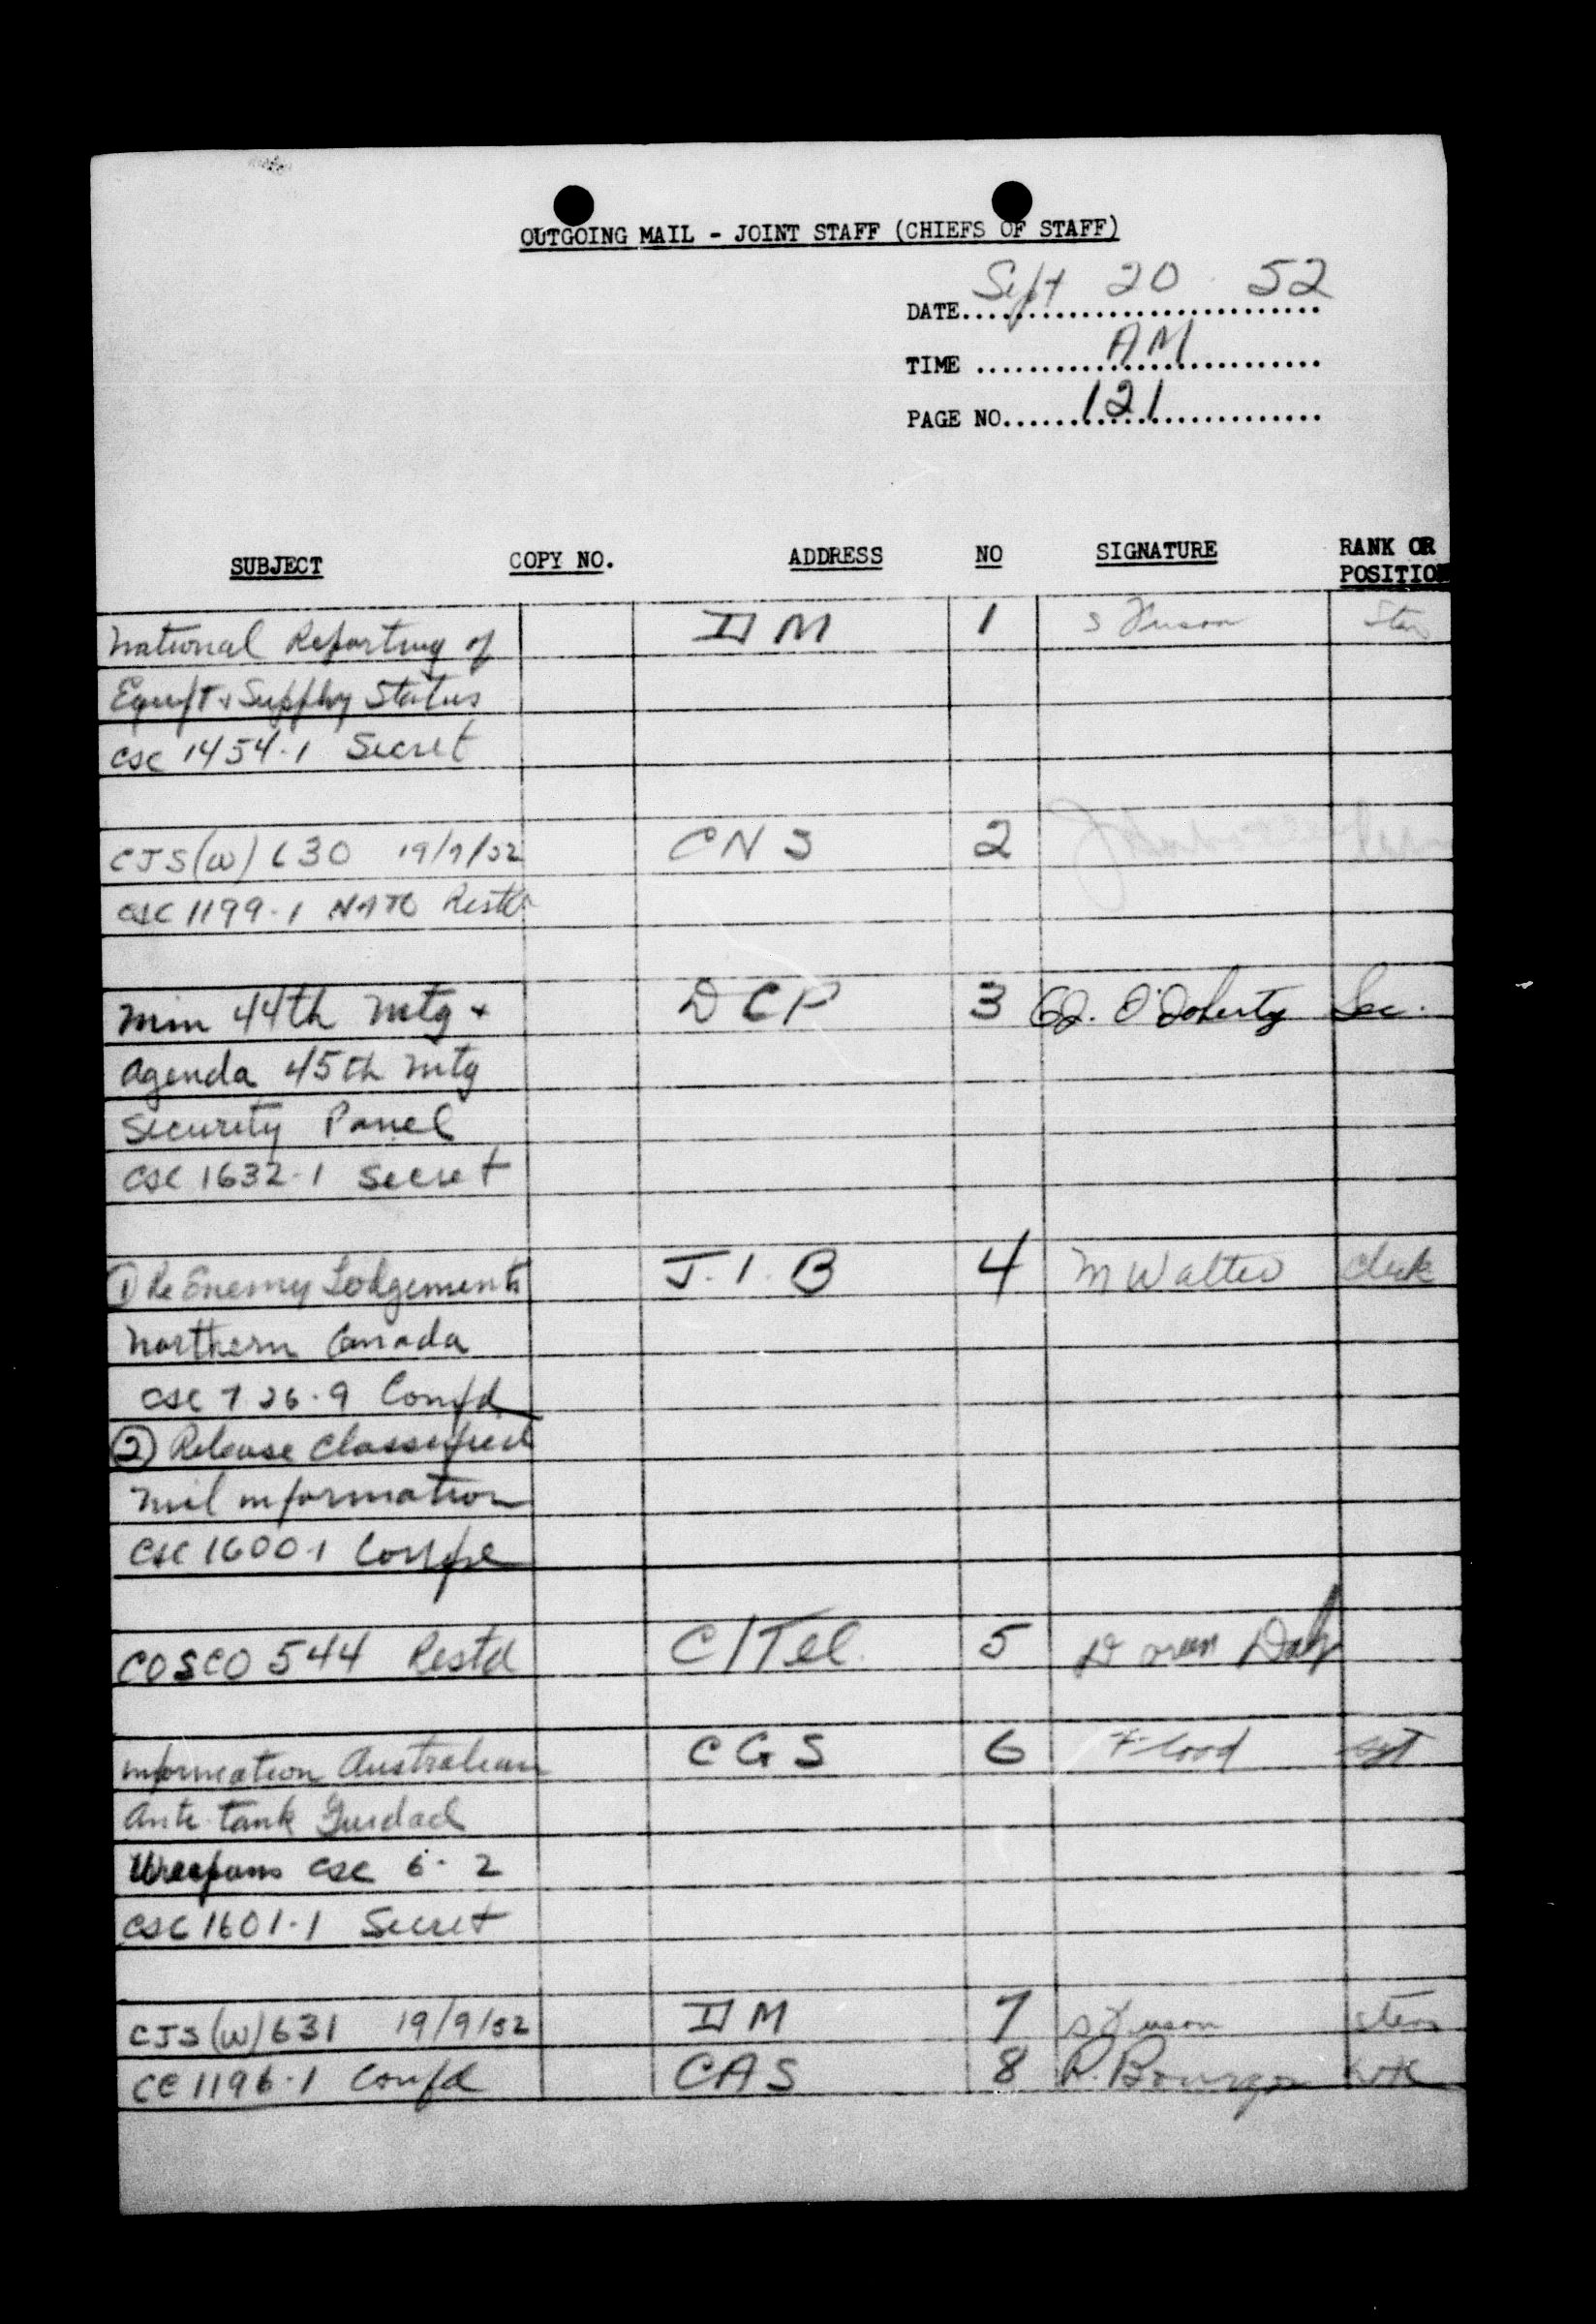 OUTGOING MAIL - JOINT STAFF (CHIEFS OF STAFF)
DATE Sept 20 52
TIME AM
PAGE NO. 121
SUBJECT COPY NO. ADDRESS NO SIGNATURE RANK OR POSITION
National Reporting of DM 1 S
Equipt & Supply Status
CSC 1454-1 Secret
CJS(W) 630 19/9/52 CNS 2
CSC 1199-1 NATO Restd
Min 44th Mtg + DCP 3 O'Doherty Sec.
Agenda 45th Mtg
Security Panel
CSC 1632-1 Secret
① Re Enemy Lodgements J.I.B 4 M Walter Clerk
Northern Canada
CSC 726-9 Confd
② Release Classified
Mil information
CSC 1600-1 Confd
COSCO 544 Restd C/Tel. 5 Doreen Daly
Information Australian CGS 6 Flood Sgt
Anti-tank Guided
Weapons CSC 6-2
CSC 1601-1 Secret
CJS(W) 631 19/9/52 DM 7 S Steno
CC 1196-1 Confd CAS 8 R. Bourgon